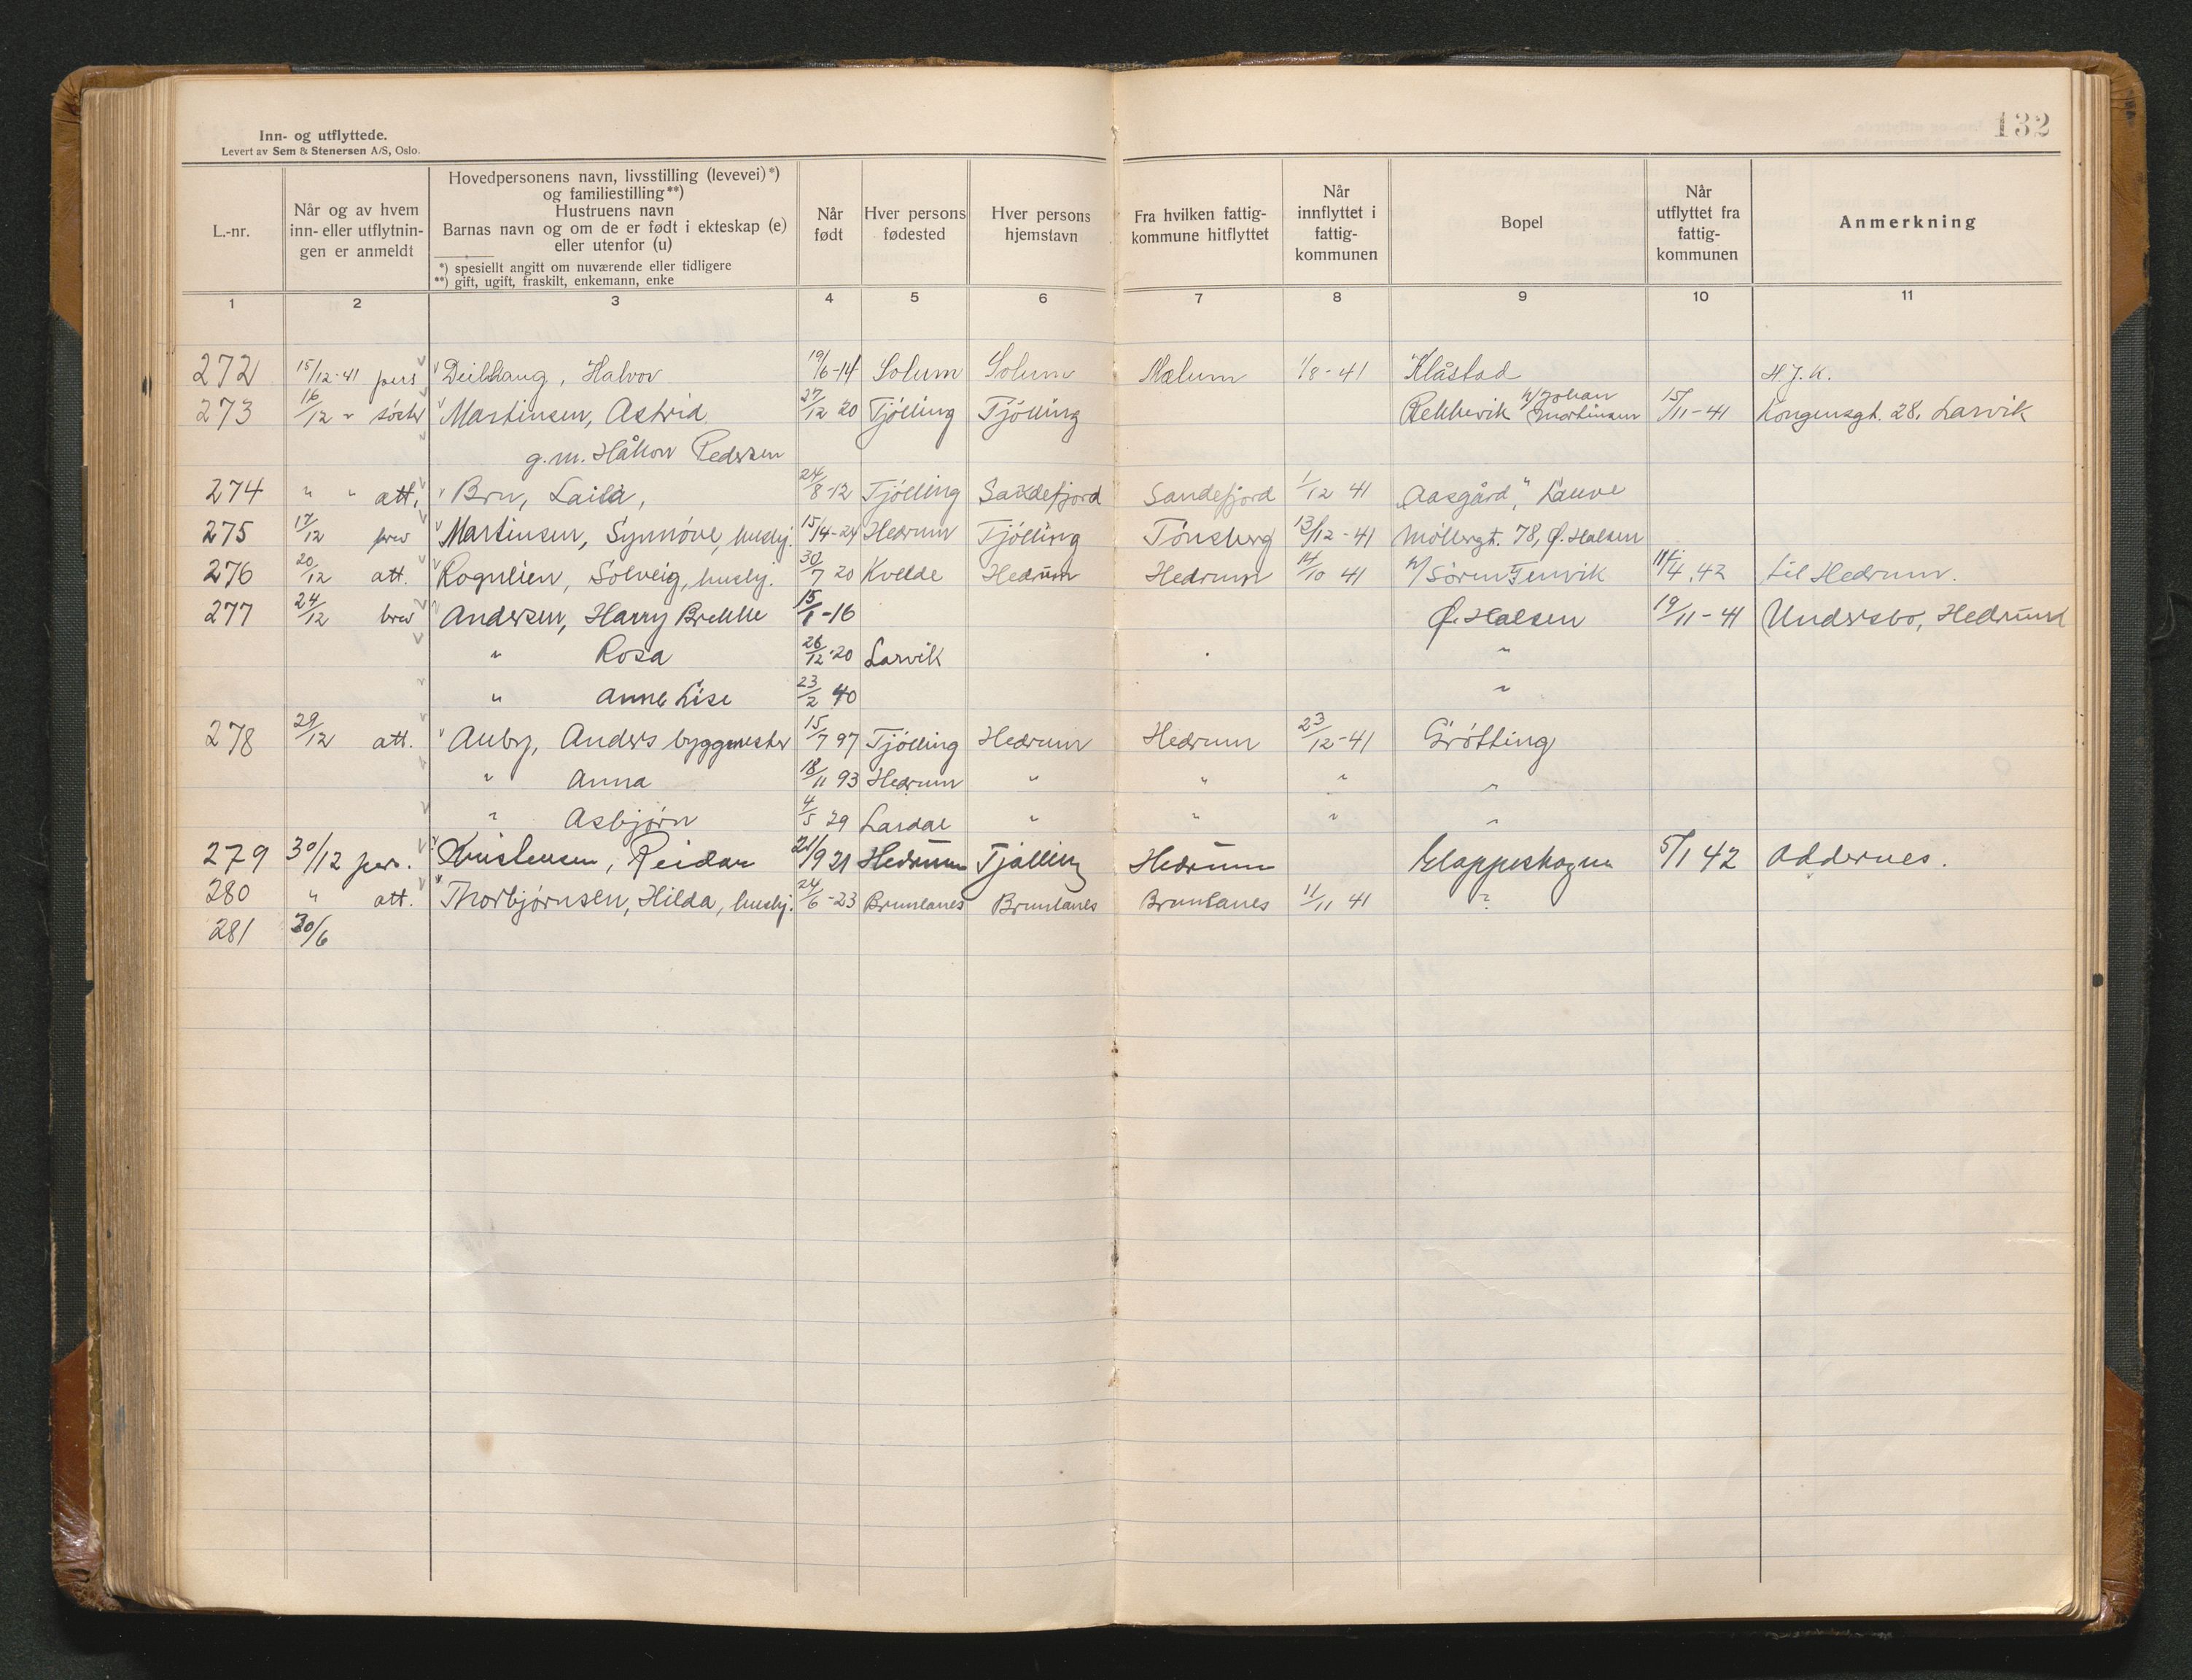 132
Inn- og utflyttede.
Levert av Sem & Stenersen A/S, Oslo.
L.-nr.
Når og av hvem inn- eller utflytnin-gen er anmeldt
Hovedpersonens navn, livsstilling (levevei)*)
og familiestilling**)
Hustruens navn
Barnas navn og om de er født i ekteskap (e)
eller utenfor (u)
*) spesiellt angitt om nuværende eller tidligere
**) gift, ugift, fraskilt, enkemann, enke
Når født
Hver persons fødested
Hver persons hjemstavn
Fra hvilken fattig-kommune hitflyttet
Når innflyttet i fattig-kommunen
Bopel
Når utflyttet fra fattig-kommunen
Anmerkning
1 2 3 4 5 6 7 8 9 10 11
272 15/12-41 pers. Deilhaug, Halvor 19/6-14 Solum Solum Mælum 1/8-41 Klåstad H.J.K.
273 16/12 " søster Martinsen, Astrid 27/12 20 Tjølling Tjølling Rekkevik h/Johan Martinsen 15/11-41 Kongensgt. 28, Larvik
g.m. Håkon Pedersen
274 " " att. Bru, Laila, 24/8-12 Tjølling Sandefjord Sandefjord 1/12 41 "Aasgård", Lauve
275 17/12 brev Martinsen, Synnøve, hushj. 15/4-24 Hedrum Tjølling Tønsberg 13/12-41 Møllergt. 78, Ø. Halsen
276 20/12 att. Rognlien, Solveig, hushj. 30/7 20 Kvelde Hedrum Hedrum 14/10 41 h/Søren Temvik 11/4.42 til Hedrum.
277 24/12 brev Andersen, Harry Brekke 15/1-16 Ø. Halsen 19/11-41 Undersbo, Hedrum
" Rosa 26/12-20 Larvik "
" Anne Lise 23/2 40 "
278 29/12 att. Auby, Anders byggmester 15/7 97 Tjølling Hedrum Hedrum 23/12-41 Grøtting
" Anna 18/11 93 Hedrum " " " "
" Asbjørn 4/5 29 Lardal " " " "
279 30/12 pers. Kristensen, Reidar 21/9 21 Hedrum Tjølling Hedrum Klappeskogen 5/1 42 Oddernes.
280 " att. Thorbjørnsen, Hilda, hushj. 24/6-23 Brunlanes Brunlanes Brunlanes 11/11 41 ?
281 30/6